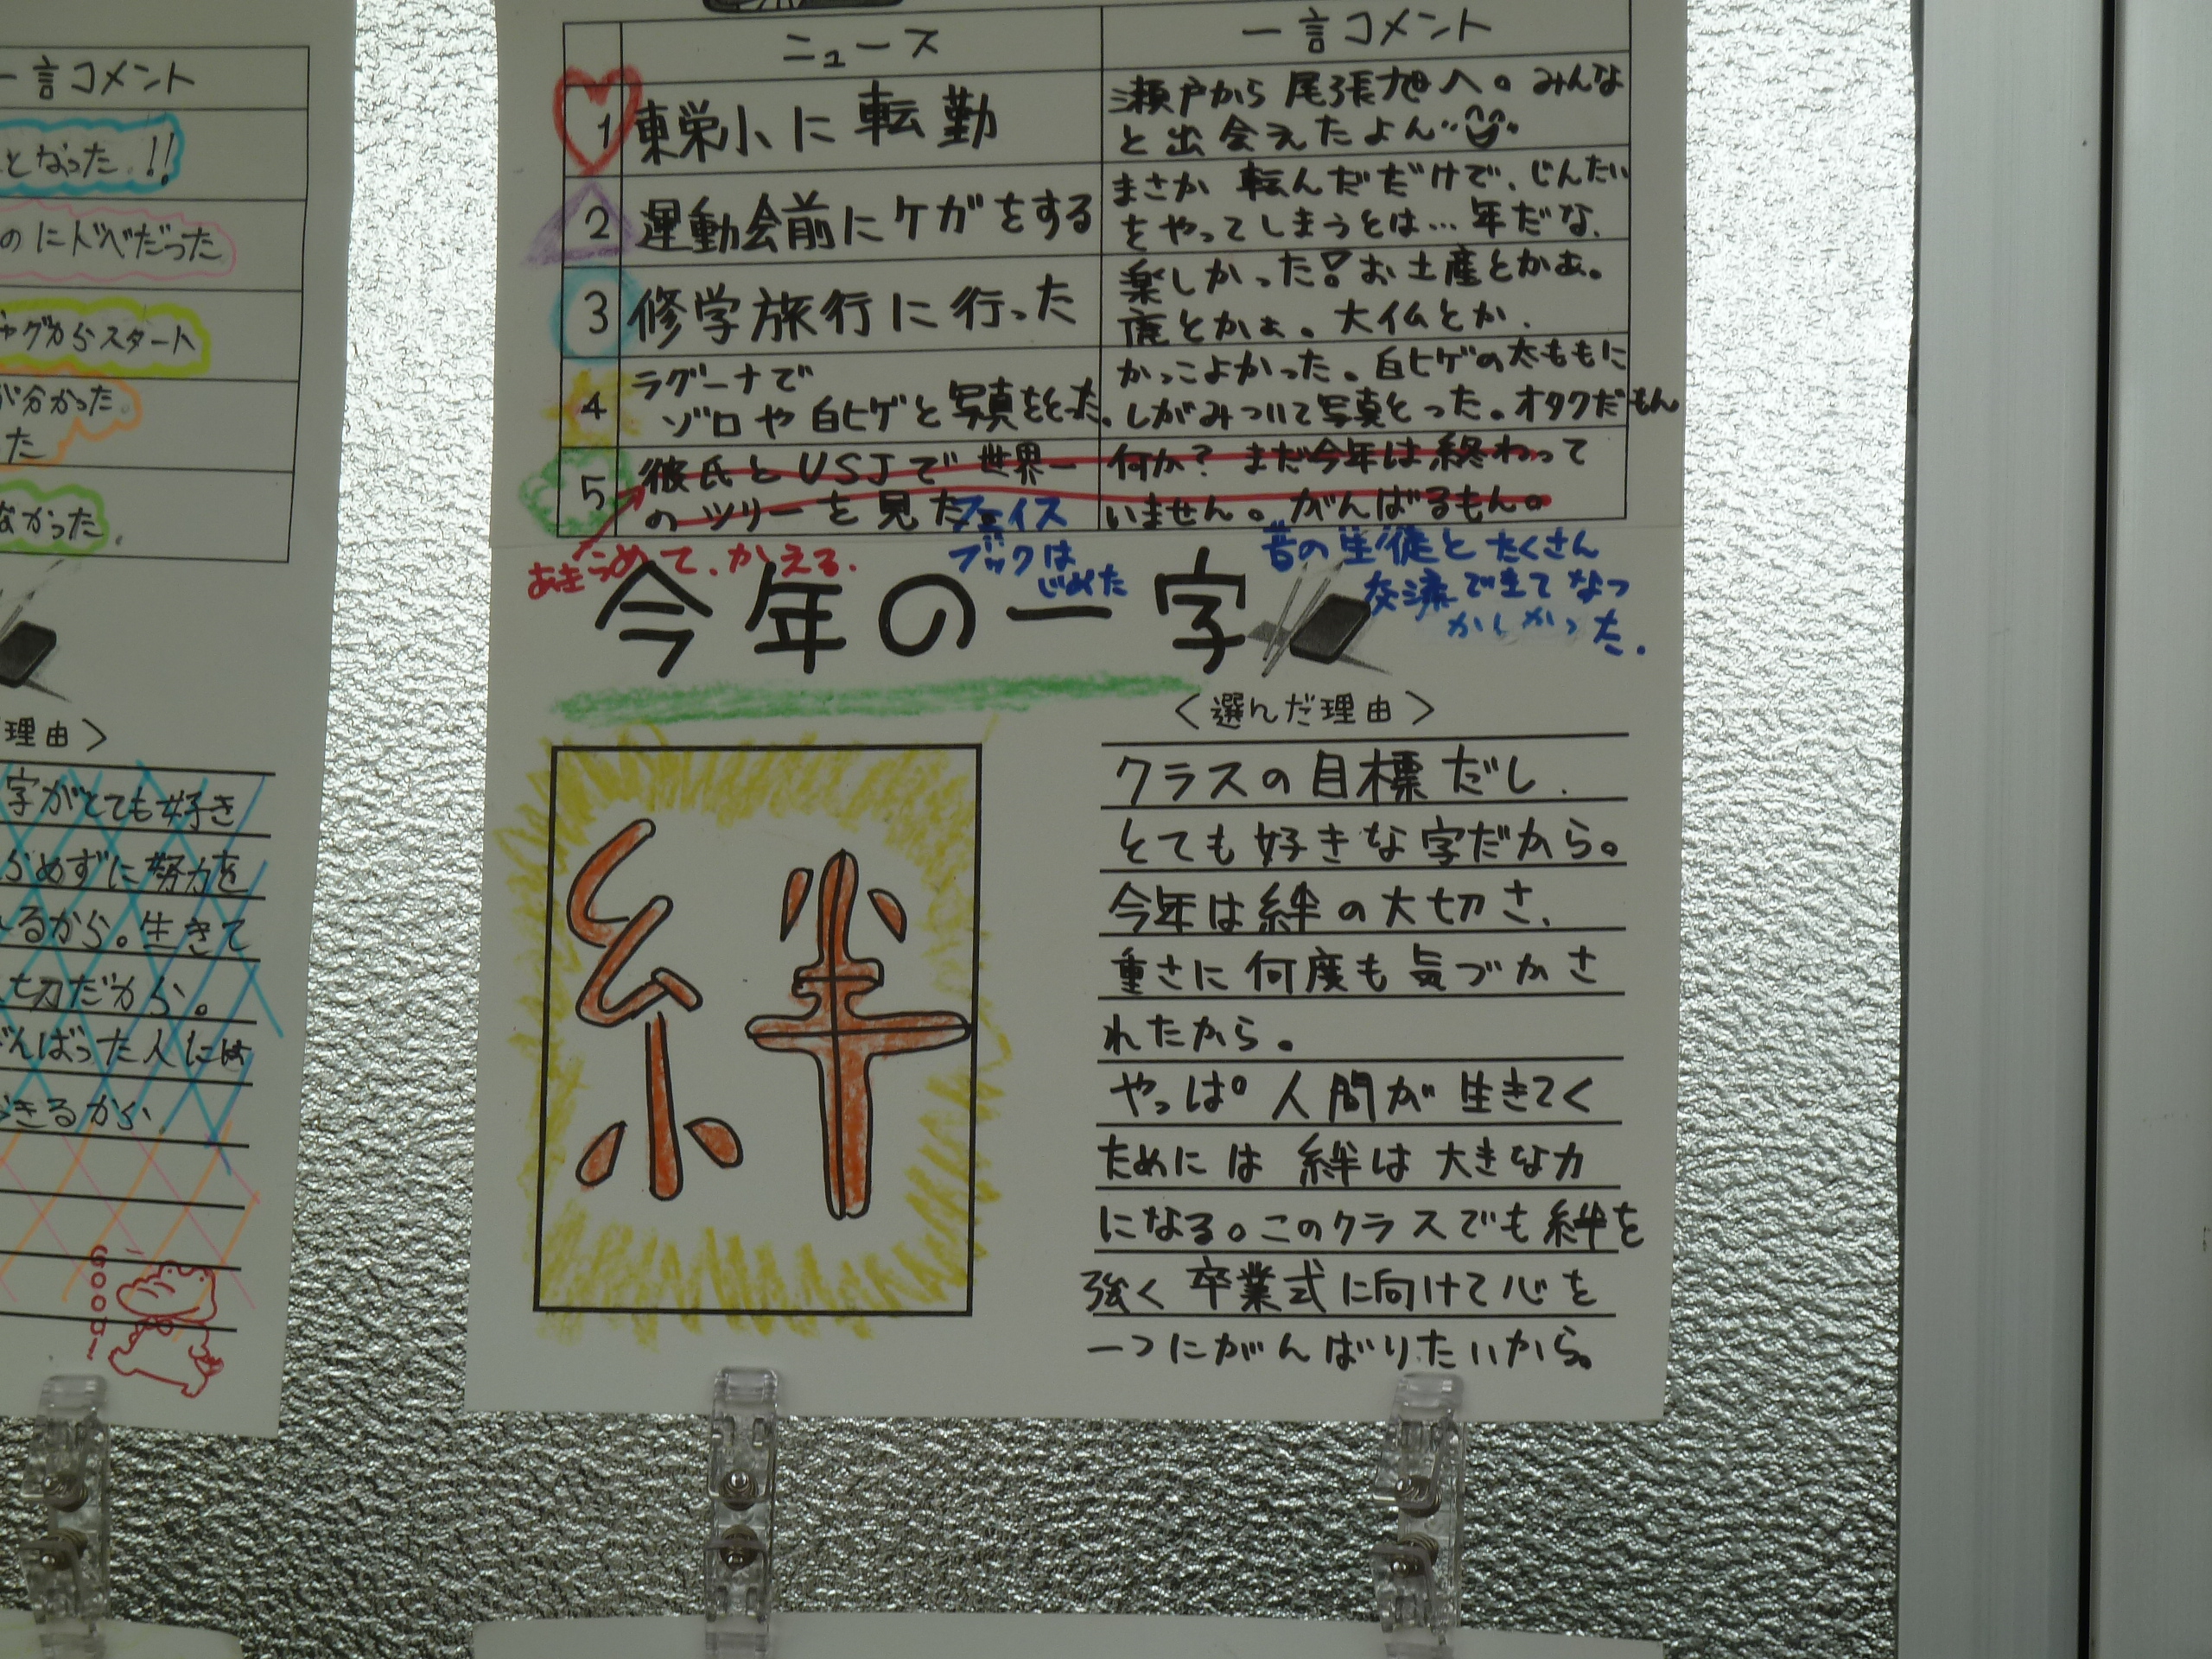 一言コメント
となった!!
のにドベだった
ャグからスタート
が分かった。
った
なかった.
理由〉
字がとても好き
らめずに努力を
るから。生きて
切だから。
んばった人には
きるから
GOOD!
ニュース
一言コメント
1
東栄小に転勤
瀬戸から尾張旭へ。みんな
と出会えたよん
2
運動会前にケガをする
まさか転んだだけで、じんたい
をやってしまうとは…年だな.
3
修学旅行に行った
楽しかった!お土産とかぁ。
鹿とかぁ。大仏とか.
4
ラグーナで
ゾロや白ヒゲと写真をとった。
かっこよかった。白ヒゲの太ももに
しがみついて写真とった。オタクだもん
5
彼氏とUSJで世界一
のツリーを見た
何か?まだ今年は終わって
いません。がんばるもん。
あきらめて、かえる.
フェイス
ブックは
じめた
昔の生徒とたくさん
交流できてなつ
かしかった.
今年の一字
絆
〈選んだ理由〉
クラスの目標だし、
とても好きな字だから。
今年は絆の大切さ、
重さに何度も気づかさ
れたから。
やっぱ人間が生きてく
ためには絆は大きな力
になる。このクラスでも絆を
強く卒業式に向けて心を
一つにがんばりたいから。